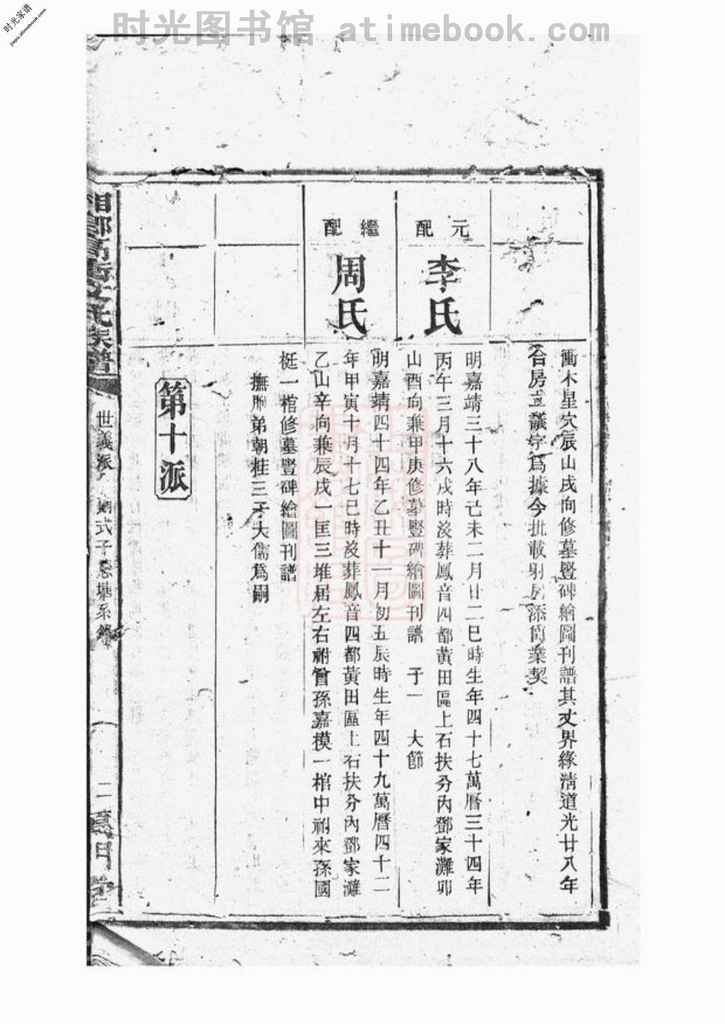 时光图书馆 atimebook.com
时光家谱
衝木星穴辰山戌向修墓豎碑繪圖刊譜其丈界緣清道光廿八年
合房立議字為據今批載射房添簡業契
元配
李氏
明嘉靖三十八年己未二月廿二巳時生年四十七萬曆三十四年
丙午三月十六戌時沒葬鳳音四都黃田區上石扶分內鄧家灘卯
山酉向兼甲庚修墓豎碑繪圖刊譜 子一 大節
繼配
周氏
明嘉靖四十四年乙丑十一月初五辰時生年四十九萬曆四十二
年甲寅十月十七巳時沒葬鳳音四都黃田區上石扶分內鄧家灘
乙山辛向兼辰戌一匡三堆居左右祔曾孫嘉模一棺中祔來孫國
梃一棺修墓豎碑繪圖刊譜
撫胞弟朝桂三子大儒為嗣
第十派
氏族譜
世義派
式子
系
二